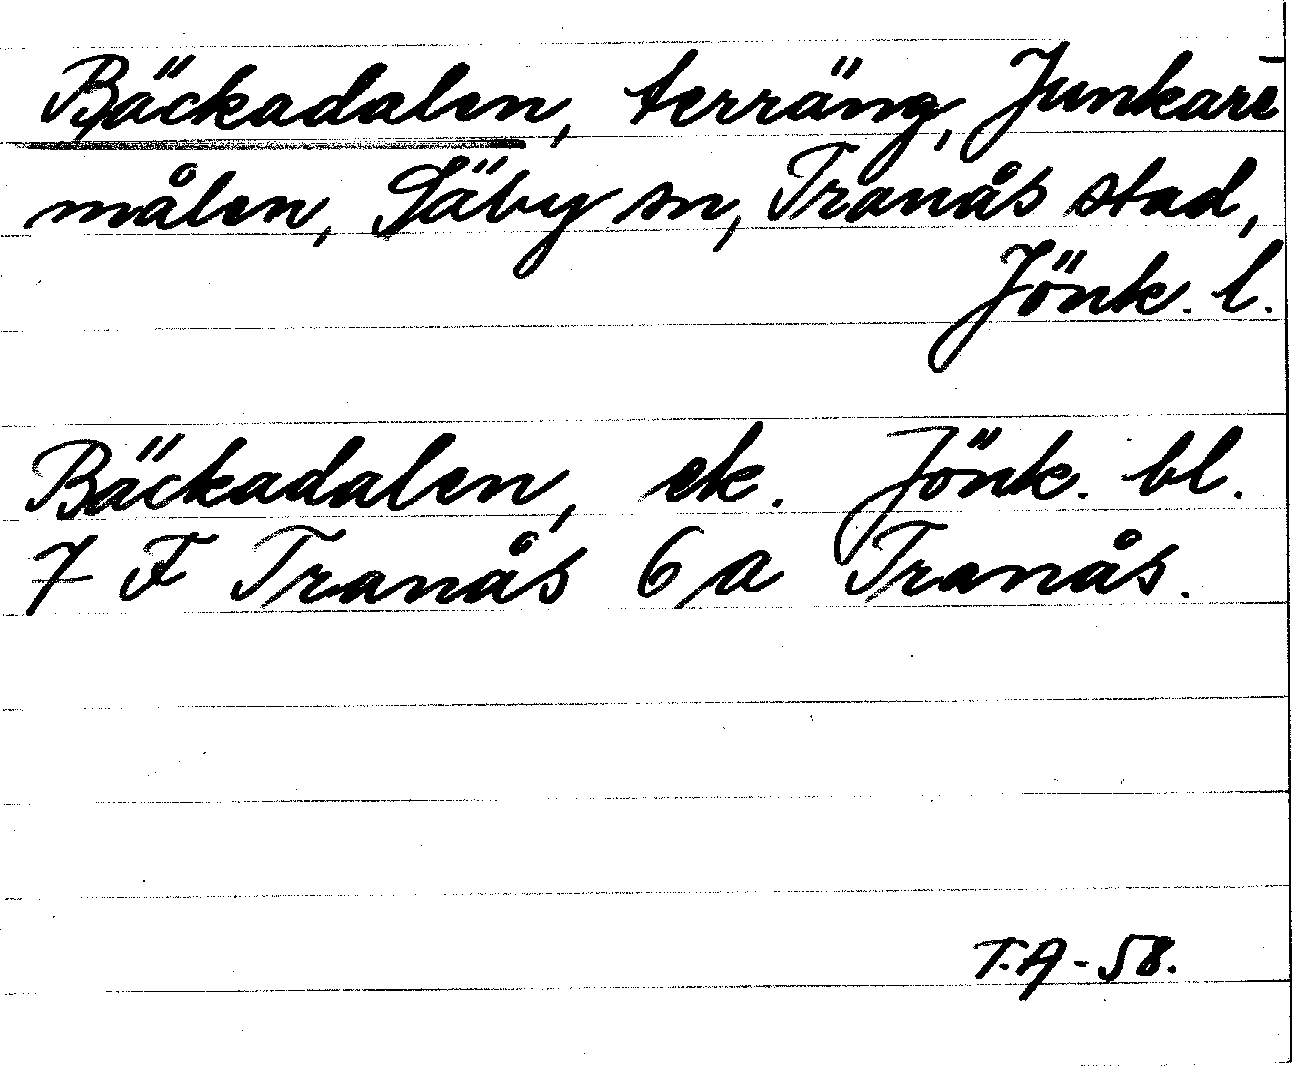 Bäckadalen, terräng, Junkare-
målen, Säby sn, Tranås stad,
Jönk. l.
Bäckadalen, ek. Jönk. bl.
7 F Tranås 6 a Tranås.
T.A-58.